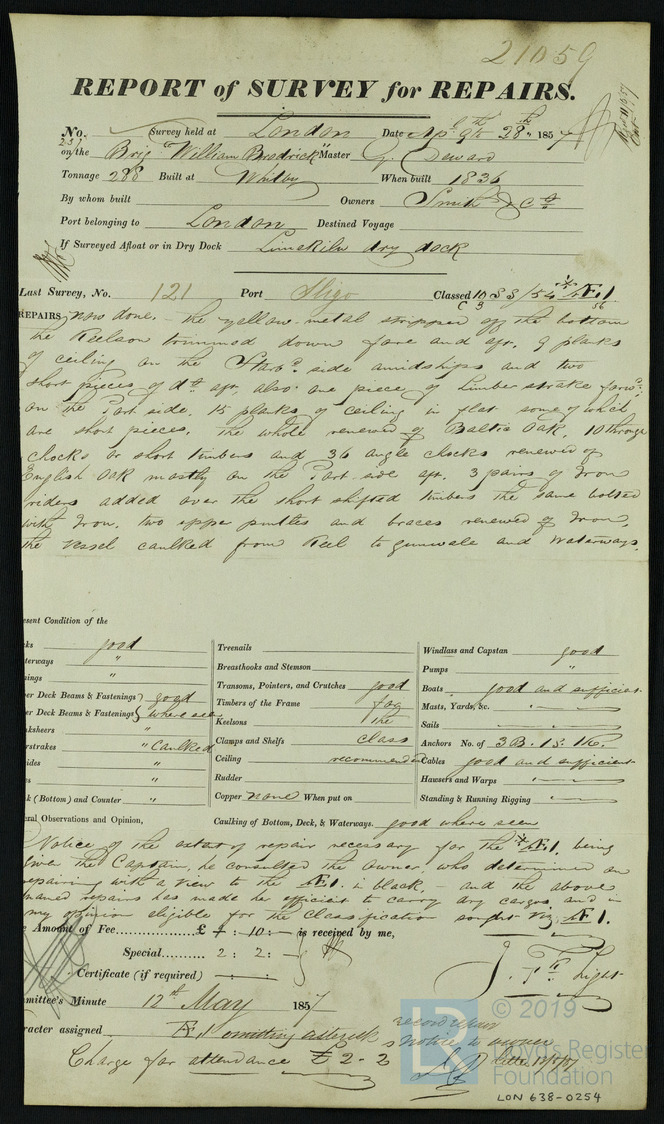 21059
REPORT of SURVEY for REPAIRS.
No. 237 Survey held at London Date Apl 9th to 28th 1857
on the Brig "William Brodrick" Master G. Seward
Tonnage 288 Built at Whitby When built 1836
By whom built Owners Smith & Co
Port belonging to London Destined Voyage
If Surveyed Afloat or in Dry Dock Limekiln dry dock
Last Survey, No. 121 Port Sligo Classed 10 SS/54 Æ1
REPAIRS now done. the yellow metal stripped off the bottom
the Keelson trimmed down fore and aft. 9 planks
of ceiling on the Starbd side amidships and two
short pieces of do aft, also one piece of Limber strake forwd
on the Port side, 15 planks of ceiling in flat some of which
are short pieces, the whole renewed of Baltic Oak, 10 through
chocks or short timbers and 36 angle chocks renewed of
English Oak mostly on the Port side aft. 3 pairs of Iron
riders added over the short shifted timbers the same bolted
with Iron. two upper pintles and braces renewed of Iron.
the vessel caulked from Keel to gunwale and Waterways.
esent Condition of the
ks good
terways "
ings "
er Deck Beams & Fastenings } good
er Deck Beams & Fastenings } where seen
ksheers "
rstrakes " Caulked
ides "
s "
k (Bottom) and Counter "
Treenails
Breasthooks and Stemson
Transoms, Pointers, and Crutches good
Timbers of the Frame for
Keelsons the
Clamps and Shelfs Class
Ceiling recommended
Rudder
Copper none When put on
Windlass and Capstan good
Pumps "
Boats good and sufficient
Masts, Yards, &c. "
Sails "
Anchors No. of 3B. 1S. 1K.
Cables good and sufficient
Hawsers and Warps "
Standing & Running Rigging "
ral Observations and Opinion, Caulking of Bottom, Deck, & Waterways. good where seen
Notice of the extent of repair necessary for the *Æ1. being
given the Captain, he consulted the owner who determined on
repairing with a view to the Æ1. in black. - and the above
named repairs has made her efficient to carry dry cargos, and in
my opinion eligible for the Classification sought Viz. Æ1.
e Amount of Fee £ : 10 : - is received by me,
Special 2 : 2 :
Certificate (if required)
J. F. Light
mmittee's Minute 12th May 1857
racter assigned Æ1 omitting asterisk
notice to owner
Charge for attendance £2-2
© 2019
Lloyd's Register
Foundation
LON 638-0254